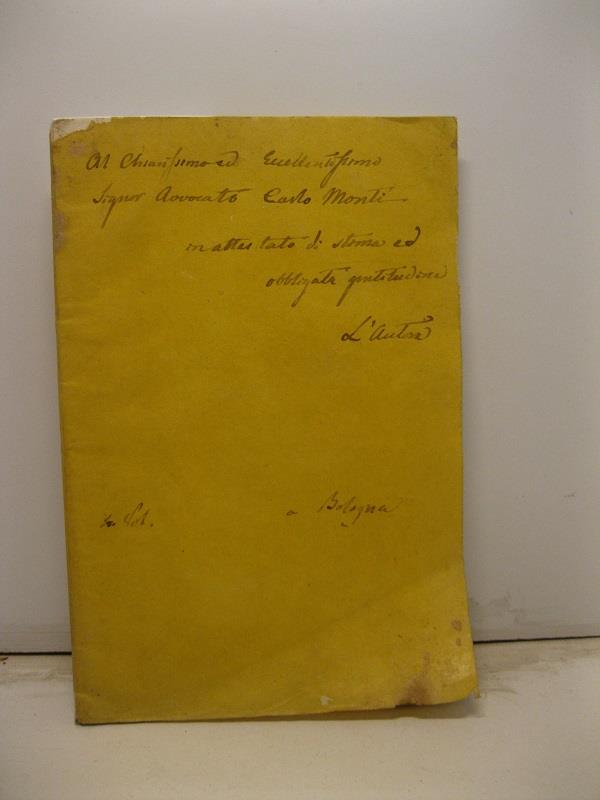 Al Chiarissimo ed Eccellentissimo
Signor Avvocato Carlo Monti
in attestato di stima ed
obbligata gratitudine
L'Autore
a Bologna